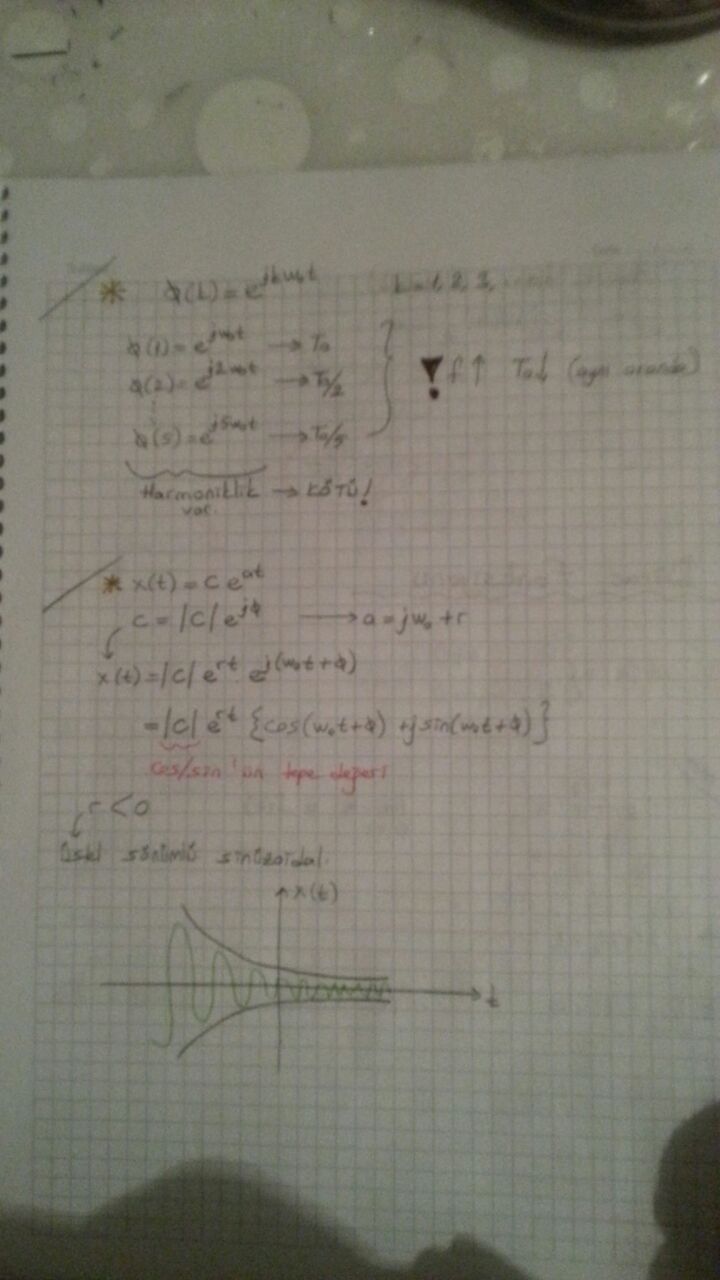 * ϕ(k) = e^{jkω₀t} k=1, 2, 3,
ϕ(1) = e^{jω₀t} → T₀
ϕ(2) = e^{j2ω₀t} → T₀/2
! f↑ T₀↓ (aynı oranda)
ϕ(5) = e^{j5ω₀t} → T₀/5
Harmoniklik → KÖTÜ!
var.
* x(t) = C e^{at}
C = |C| e^{jϕ} → a = jω₀ + r
x(t) = |C| e^{rt} e^{j(ω₀t+ϕ)}
= |C| e^{rt} {cos(ω₀t+ϕ) + j sin(ω₀t+ϕ)}
cos/sin'ün tepe değeri
r < 0
Üstel sönümlü sinüzoidal.
x(t)
t